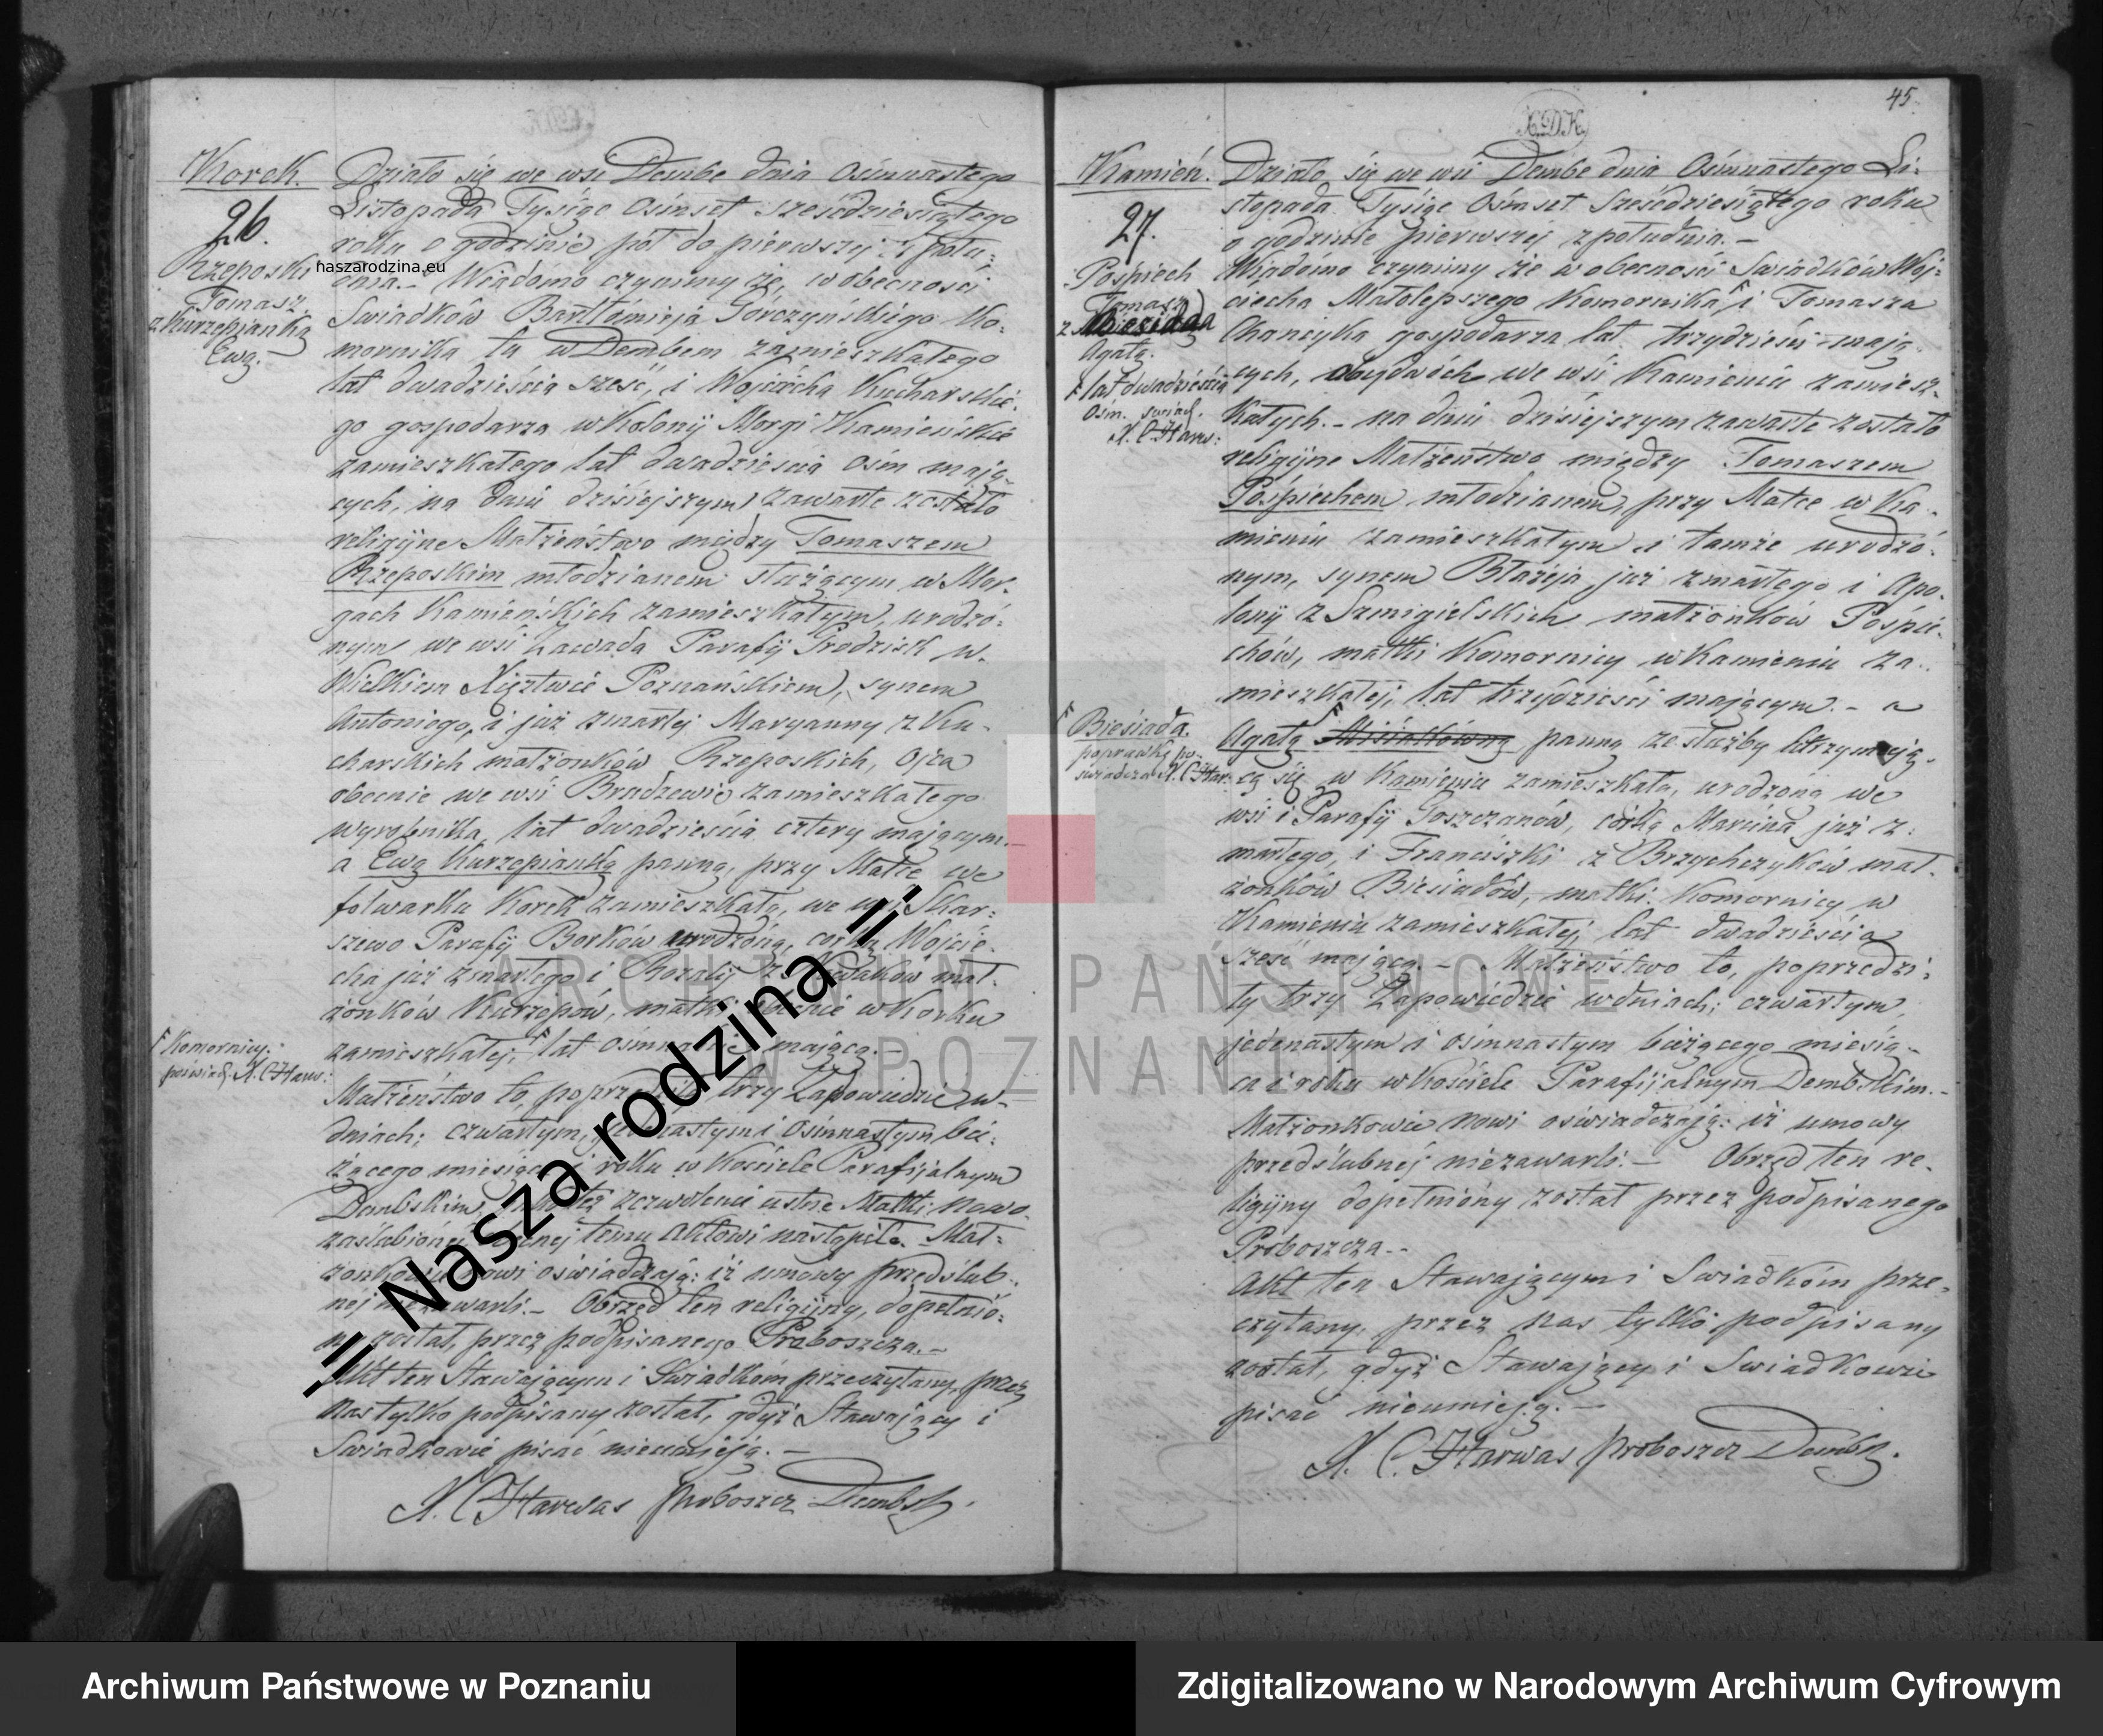 Korek.
26.
Rzeposki
Tomasz
z Kurzepianką
Ewą.
naszarodzina.eu
Działo się we wsi Dembe dnia Ośmnastego
Listopada Tysiąc Ośmset sześćdziesiątego
roku o godzinie pół do pierwszej z połu-
dnia. Wiadomo czynimy że, w obecności
Swiadków Bartłomieja Górczyńskiego Ko-
mornika tu w Dembem zamieszkałego
lat dwadzieścia sześć, i Wojciecha Kucharskie-
go gospodarza w Kolonij Morgi Kamieńskie
zamieszkałego lat dwadzieścia ośm mają-
cych, na dniu dzisiejszym zawarte zostało
religijne Małżeństwo między Tomaszem
Rzeposkim młodzianem służącym w Mor-
gach Kamieńskich zamieszkałym, urodzo-
nym we wsi Zawada Parafij Grodzisk w
Wielkiem Xięztwie Poznańskiem, synem
Antoniego, i już zmarłej Maryanny z Ku-
charskich małżonków Rzeposkich, Ojca
obecnie we wsi Brudzewie zamieszkałego
wyrobnika, lat dwadzieścia cztery mającym.
a Ewą Kurzepianką panną, przy Matce we
folwarku Korek zamieszkałą, we wsi Skar-
szewo Parafij Borków urodzoną, córką Wojcie-
cha już zmarłego i Rozalij z mał-
żonków Kurzepów, matki obecnie w Korku
zamieszkałej, lat ośmnaście mającą.
F Komornicy.
poświad. X. C Harw:
Małżeństwo to, poprzedziły trzy Zapowiedzie w
dniach; czwartym, jedenastym i ośmnastym bie-
żącego miesiąca i roku w Kościele Parafijalnym
Dembskim, jako też zezwolenie ustne Matki nowo
zaślubionej obecnej temu Aktowi nastąpiło. Mał-
żonkowie nowi oświadczają: iż umowy przedślub-
nej niezawarli. Obrzęd ten religijny, dopełnio-
ny został, przez podpisanego Proboszcza.
Akt ten Stawającym i Świadkom przeczytany, przez
nas tylko podpisany został, gdyż Stawający i
Swiadkowie pisać nieumieją.
X. C Harwas proboszcz Dembsk.
45
X.D.K.
Kamień.
27.
Pośpiech
Tomasz
z Biesiada
Agatą.
F lat dwadzieścia
ośm. świad.
X. C Harw:
Działo się we wsi Dembe dnia Ośmnastego Li-
stopada Tysiąc Ośmset Sześćdziesiątego roku
o godzinie pierwszej z południa.
Wiadomo czynimy że w obecności Swiadków Woj-
ciecha Małolepszego Komornika F i Tomasza
Chanczyka gospodarza lat trzydzieści mają-
cych, obydwóch we wsi Kamieniu zamiesz-
kałych. na dniu dzisiejszym zawarte zostało
religijne Małżeństwo między Tomaszem
Pośpiechem młodzianem, przy Matce w Ka-
mieniu zamieszkałym i tamże urodzo-
nym, synem Błażeja już zmarłego i Apo-
lonij z Szmigielskich małżonków Pośpie-
chów, matki Komornicy w Kamieniu za-
mieszkałej, lat trzydzieści mającym. a
F Biesiadą.
poprawkę po-
świadcza X. C Har:
Agatą F Misiakówną panną ze służby utrzymują-
cą się w Kamieniu zamieszkałą, urodzoną we
wsi i Parafij Goszczanów, córką Marcina już z-
marłego, i Franciszki z Brzychczyków mał-
żonków Biesiadów, matki Komornicy w
Kamieniu zamieszkałej, lat dwadzieścia
sześć mającą. Małżeństwo to, poprzedzi-
ły trzy Zapowiedzie w dniach; czwartym,
jedenastym i ośmnastym bieżącego miesią-
ca i roku w Kościele Parafijalnym Dembskim.
Małżonkowie nowi oświadczają: iż umowy
przedślubnej niezawarli. Obrzęd ten re-
ligijny dopełniony został przez podpisanego
Proboszcza.
Akt ten Stawającym i Swiadkom prze-
czytany, przez nas tylko podpisany
został, gdyż Stawający i Swiadkowie
pisać nieumieją.
X. C. Harwas proboszcz Dembsk.
ARCHIWUM PAŃSTWOWE
W POZNANIU
=: Nasza rodzina :=
Archiwum Państwowe w Poznaniu
Zdigitalizowano w Narodowym Archiwum Cyfrowym